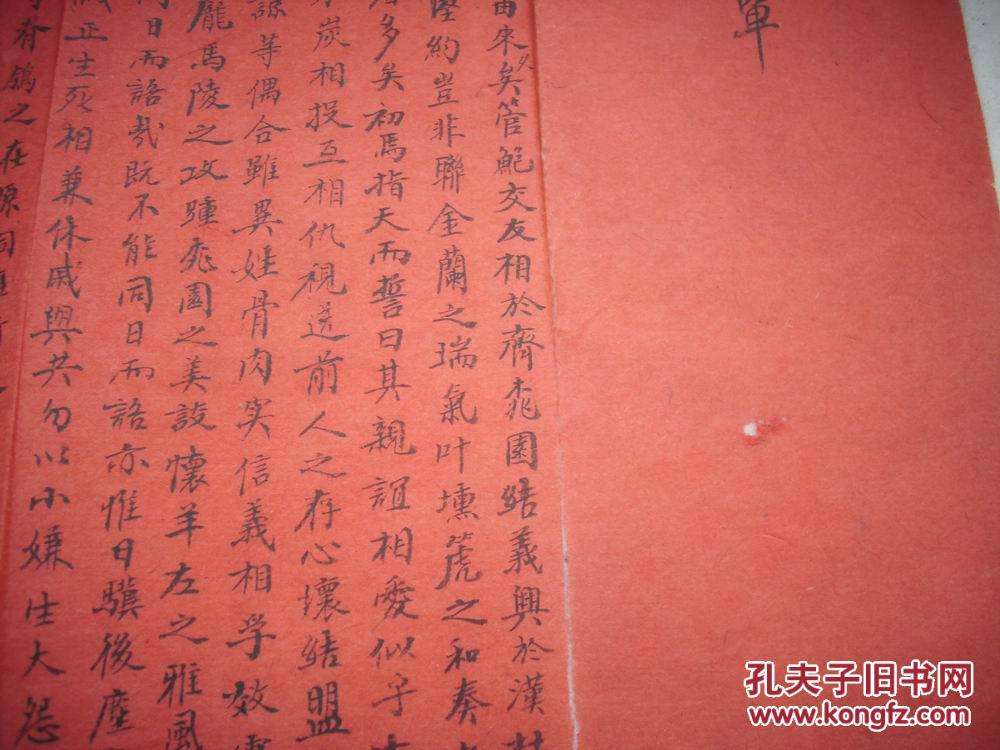 單
由來矣管鮑交友相於齊桃園結義興於漢
堅約豈非聯金蘭之瑞氣叶壎箎之和奏
多矣初焉指天而誓曰其親誼相愛似乎
炭相投互相仇視送前人之存心壞結盟
諒等偶合雖異姓骨肉实信義相孚效
龐馬陵之攻踵桃園之美設懷羊左之雅風
同日而語哉既不能同日而語亦惟日驥後塵
誠正生死相兼休戚與共勿以小嫌生大怨
脊鴒之在原同
孔夫子旧书网
www.kongfz.com